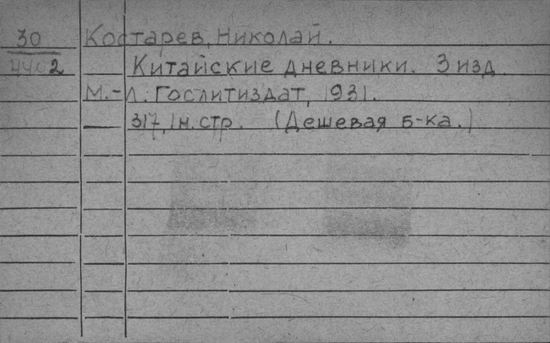 30 Костарев, Николай.
4402 Китайские дневники. 3 изд.
М.-Л. Гослитиздат, 1931.
317, 1 н. стр. (Дешевая б-ка.)